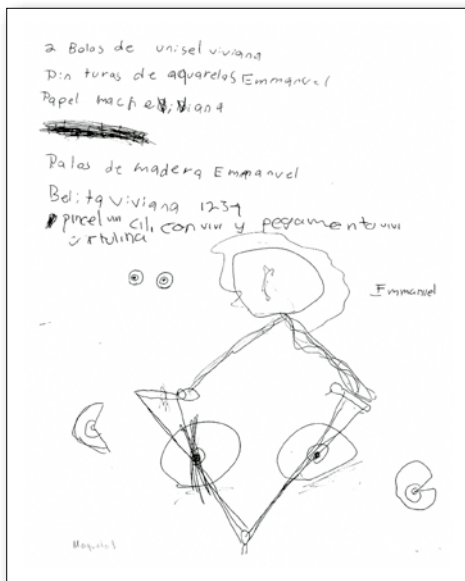 2 Bolas de unisel viviana
Pin turas de aquarelas Emmanuel
Papel mache Viviana
Palas de madera Emmanuel
Belita viviana 1234
pincel un cil, con vivi y pegamento vivi
Emmanuel